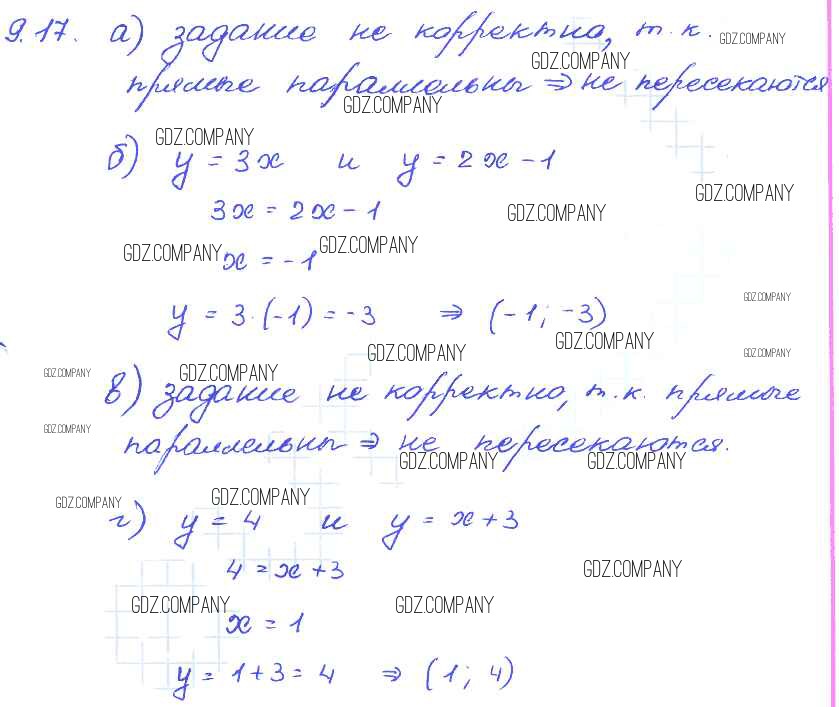 9.17. а) задание не корректно, т.к.
GDZ.COMPANY
GDZ.COMPANY
прямые параллельны ⇒ не пересекаются
GDZ.COMPANY
GDZ.COMPANY
б) y = 3x и y = 2x - 1
GDZ.COMPANY
3x = 2x - 1
GDZ.COMPANY
GDZ.COMPANY
GDZ.COMPANY
x = -1
GDZ.COMPANY
y = 3·(-1) = -3 ⇒ (-1; -3)
GDZ.COMPANY
GDZ.COMPANY
GDZ.COMPANY
GDZ.COMPANY
GDZ.COMPANY
в) задание не корректно, т.к. прямые
GDZ.COMPANY
параллельны ⇒ не пересекаются.
GDZ.COMPANY
GDZ.COMPANY
GDZ.COMPANY
GDZ.COMPANY
г) y = 4 и y = x + 3
4 = x + 3
GDZ.COMPANY
GDZ.COMPANY
GDZ.COMPANY
x = 1
y = 1 + 3 = 4 ⇒ (1; 4)